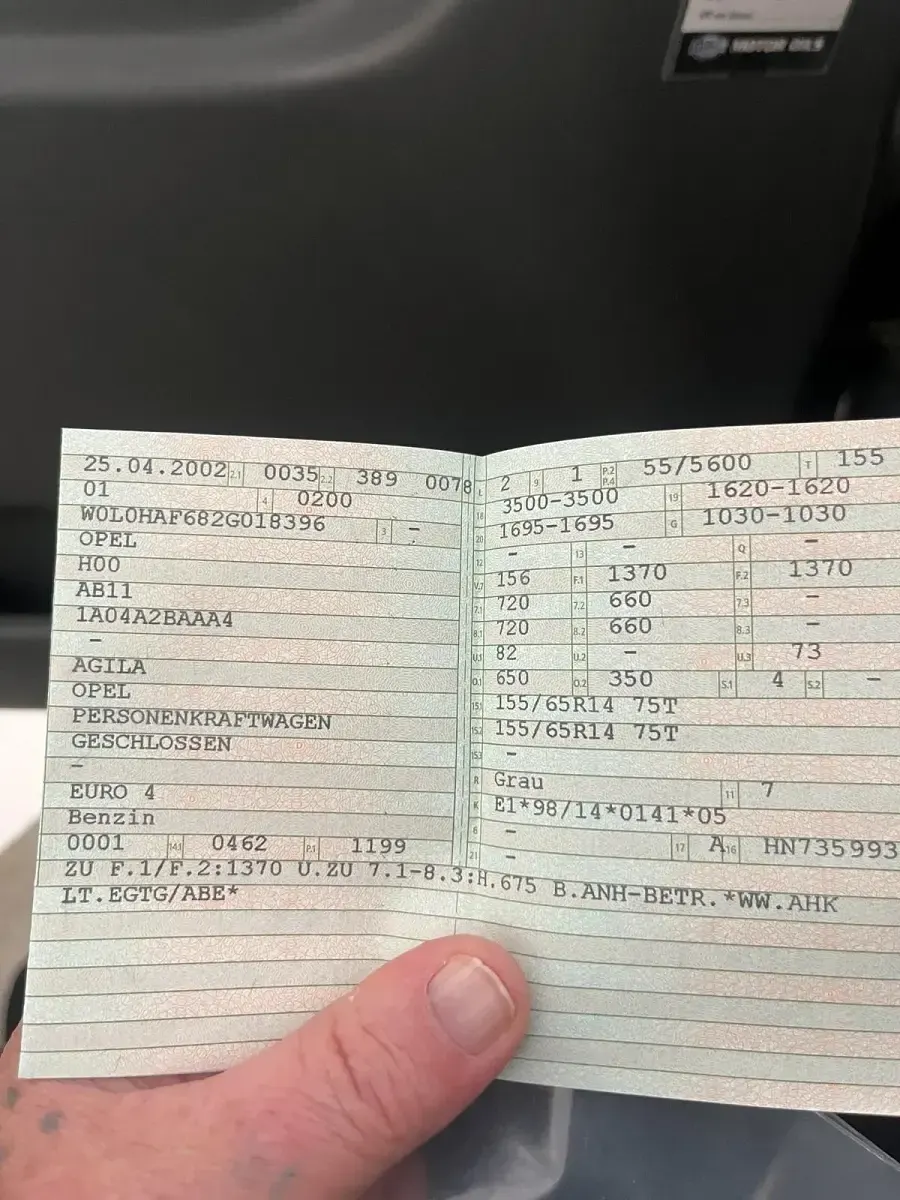 MOTOR OILS
25.04.2002 2.1 0035 2.2 389 0078
01 4 0200
W0L0HAF682G018396 3 -
OPEL
H00
AB11
1A04A2BAAA4
-
AGILA
OPEL
PERSONENKRAFTWAGEN
GESCHLOSSEN
-
EURO 4
Benzin
0001 14.1 0462 P.1 1199
L 2 9 1 P.2 P.4 55/5600 T 155
18 3500-3500 19 1620-1620
20 1695-1695 G 1030-1030
12 - 13 - Q -
V.7 156 F.1 1370 F.2 1370
7.1 720 7.2 660 7.3 -
8.1 720 8.2 660 8.3 -
U.1 82 U.2 - U.3 73
O.1 650 O.2 350 S.1 4 S.2 -
15.1 155/65R14 75T
15.2 155/65R14 75T
15.3 -
R Grau 11 7
K E1*98/14*0141*05
6 - 17 A 16 HN735993
21 -
ZU F.1/F.2:1370 U.ZU 7.1-8.3:H.675 B.ANH-BETR.*WW.AHK
LT.EGTG/ABE*